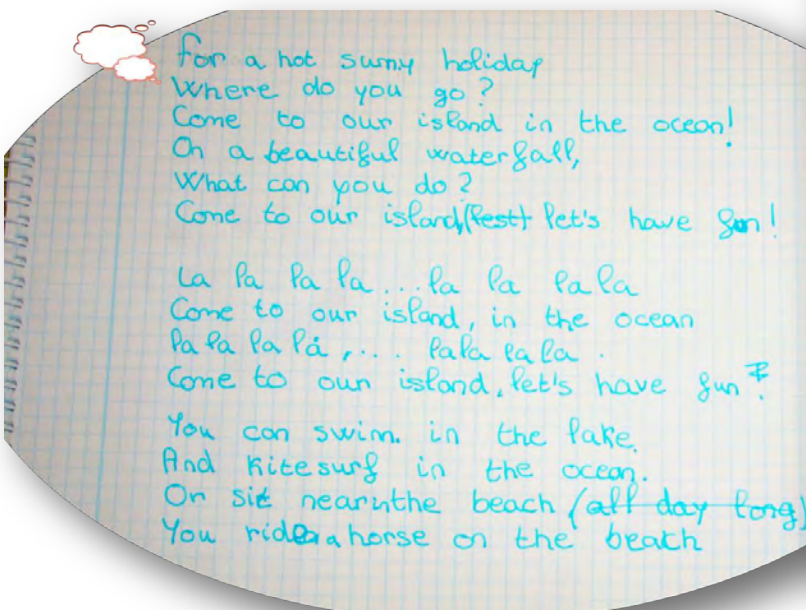 For a hot sunny holiday
Where do you go?
Come to our island in the ocean!
On a beautiful waterfall,
What can you do?
Come to our island, let's have fun!
La la la la...la la lala
Come to our island, in the ocean
la la la la,... lala lala.
Come to our island, let's have fun!
You can swim. in the lake.
And Kitesurf in the ocean.
Or sit near the beach (all day long)
You ride a horse on the beach